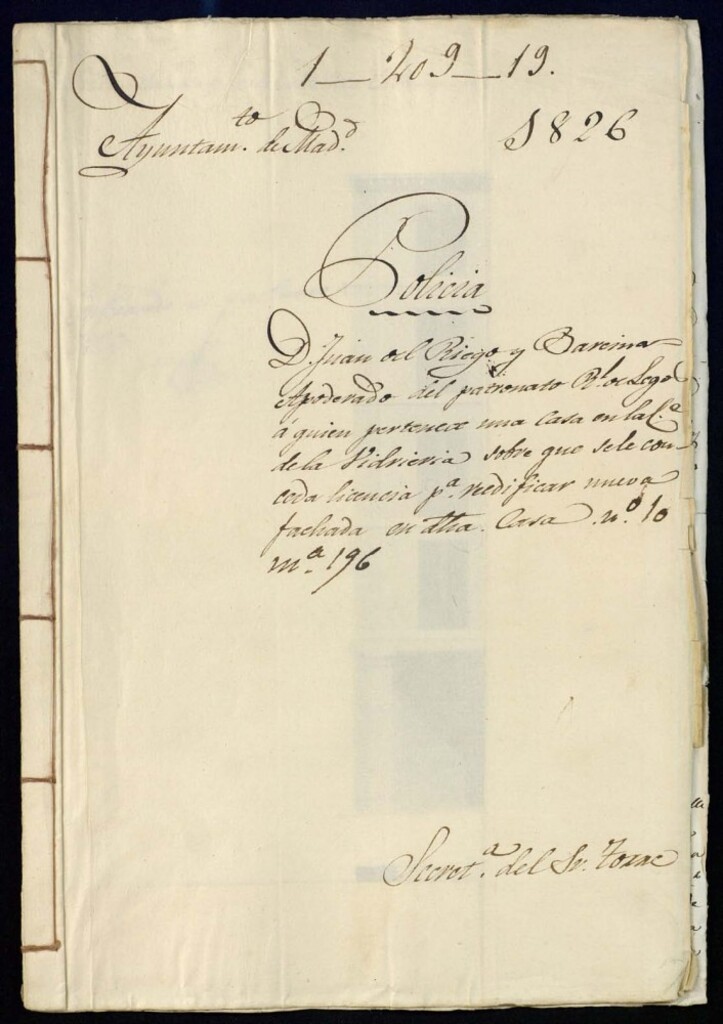 1 — 209 — 19.
Ayuntam.to de Mad.d 1826
Policia
D. Juan del Riego y Barcina
Apoderado del patronato R.l de Legos
á quien pertenece una Casa en la C.e
de la Vidrieria sobre que se le con-
ceda licencia p.a reedificar nueva
fachada en dha. Casa n.o 10
m.a 196
Secret.a del Sr.